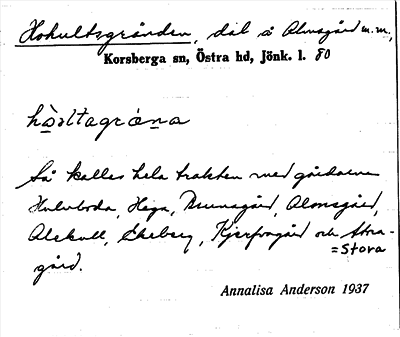 Hokultsgränden, del å Almsgård m.m,
Korsberga sn, Östra hd, Jönk. l. 80
Så kallas hela trakten med gårdarna
Huluboda, Haga, Brunsgård, Almsgård,
Alekull, Ekeberg, och Stora-
=Stora
gård.
Annalisa Anderson 1937